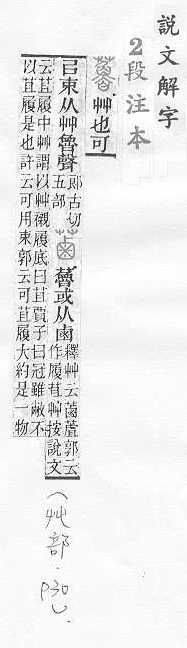 說文解字
2段注本
蓾 艸也可
㠯束从艸魯聲 郎古切
五部 蓾 蓾或从鹵 釋艸云菌蘆郭云
作履苴艸按說文
云苴履中艸謂以艸襯履底曰苴賈子曰冠雖敝不
以苴履是也許云可用束郭云可苴履大約是一物
(艸部.
p30